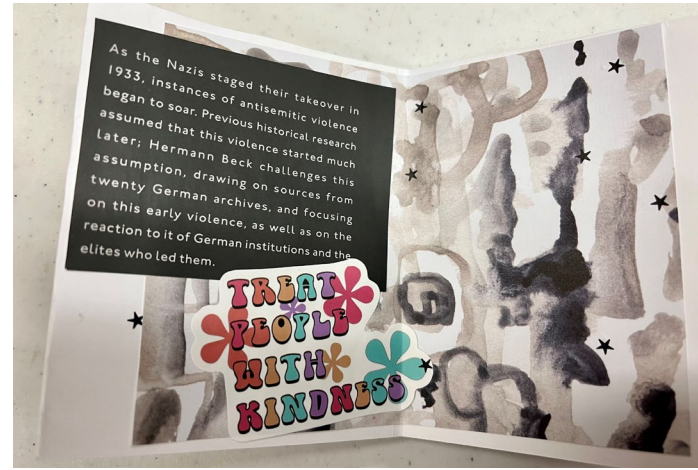 As the Nazis staged their takeover in
1933, instances of antisemitic violence
began to soar. Previous historical research
assumed that this violence started much
later; Hermann Beck challenges this
assumption, drawing on sources from
twenty German archives, and focusing
on this early violence, as well as on the
reaction to it of German institutions and the
elites who led them.
TREAT
PEOPLE
WITH
KINDNESS